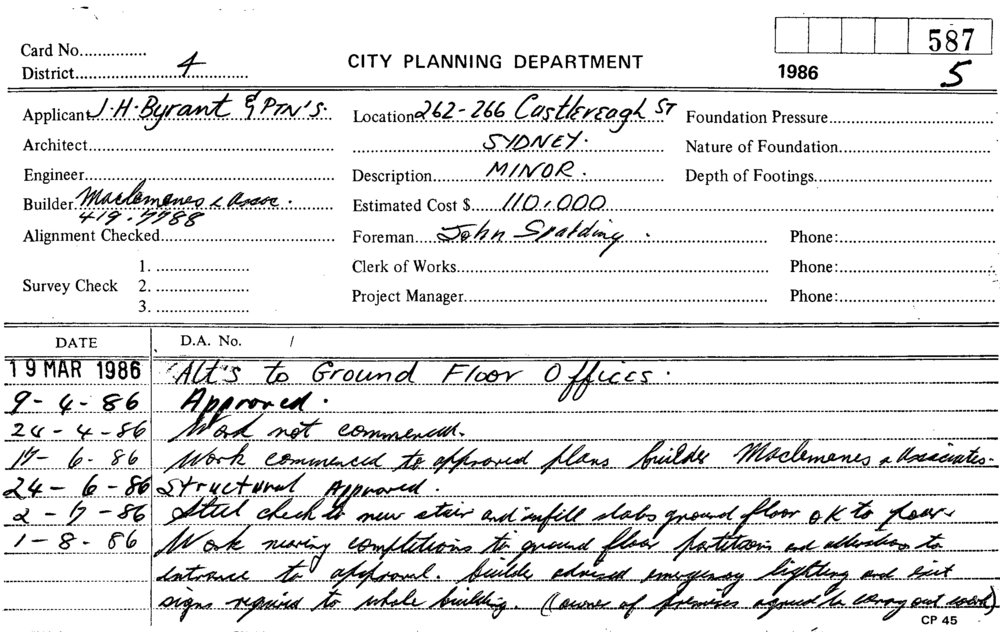 587
Card No...............
District........4........
CITY PLANNING DEPARTMENT
1986 5
Applicant J. H. Byrant & PTN'S.
Location 262-266 Castlereagh ST
Foundation Pressure
Architect
SYDNEY.
Nature of Foundation
Engineer
Description MINOR.
Depth of Footings
Builder Maclemenes & Assoc.
419.7788
Estimated Cost $ 110.000
Alignment Checked
Foreman John Spalding.
Phone:
Survey Check
1.
2.
3.
Clerk of Works
Phone:
Project Manager
Phone:
DATE D.A. No. /
19 MAR 1986 Alt's to Ground Floor Offices.
9-4-86 Approved.
24-4-86 Work not commenced.
17-6-86 Work commenced to approved plans builder Maclemenes & Associates.
24-6-86 Structural Approved.
2-7-86 Steel check to new stair and infill slabs ground floor OK to pour
1-8-86 Work nearing completions to ground floor partitions and alterations to
entrance to approval. builder advised emergency lighting and exit
signs required to whole building. (owner of premises agreed to carry out work)
CP 45